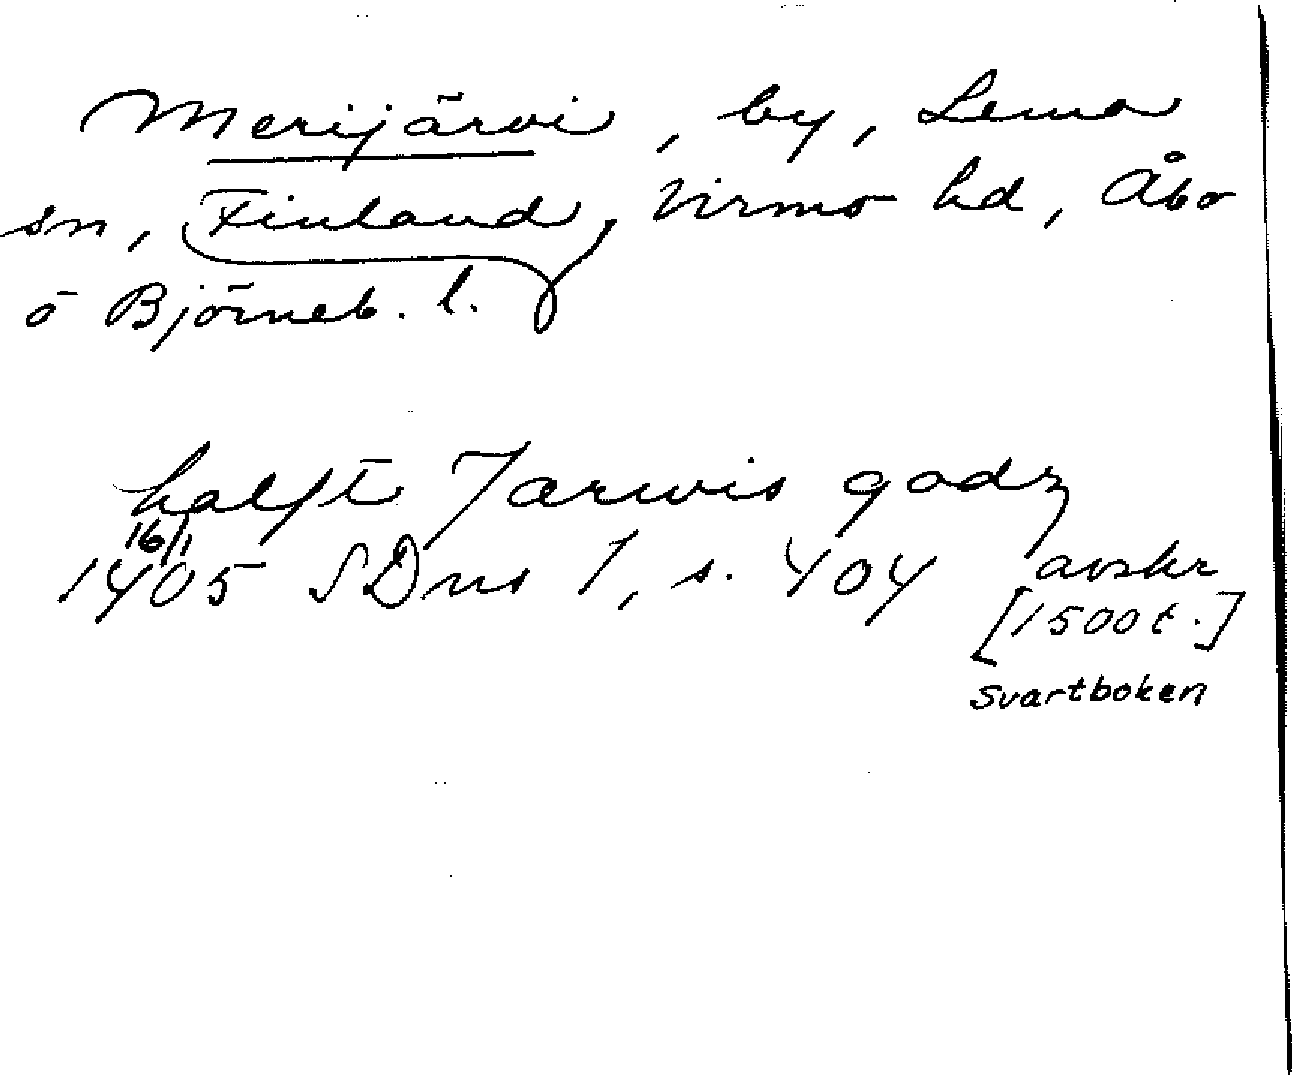 Merijärvi, by, Lemo
sn, Finland, Virmo hd, Åbo
o Björneb. l.
halft Jarwis godz
16/1
1405 SDns 1, s. 404 avskr
[1500 t.]
Svartboken